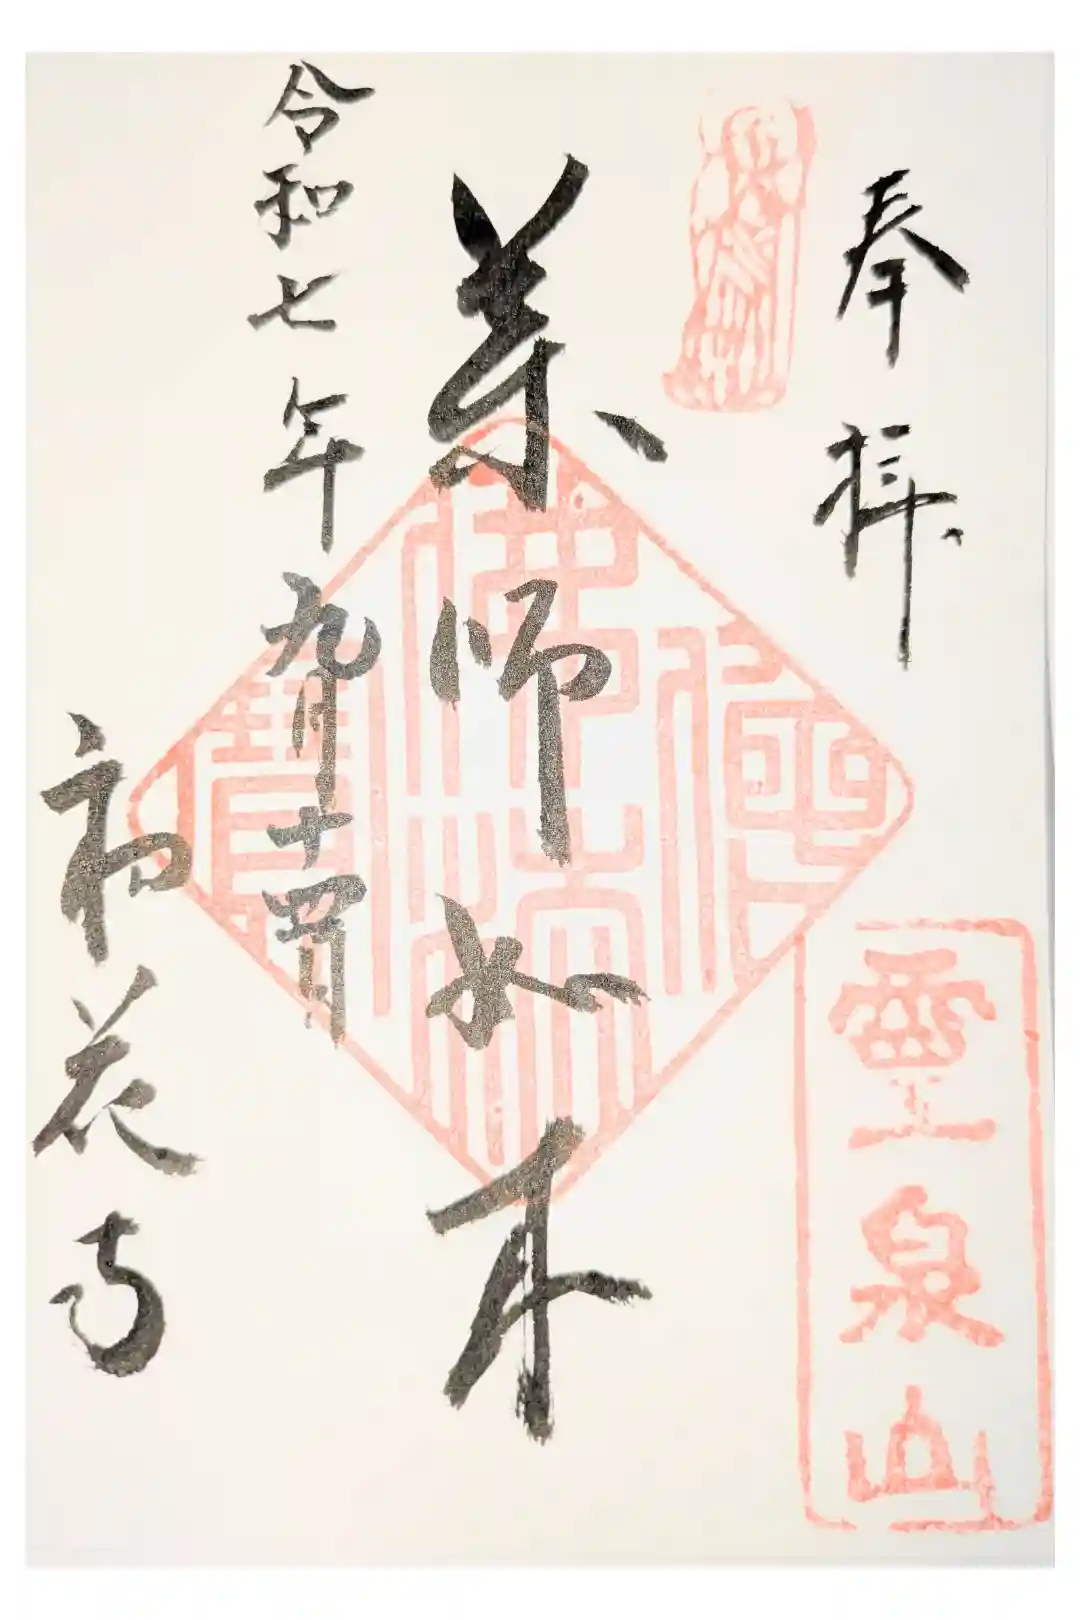 奉拝
薬師如来
令和七年九月十四日
初花寺
靈泉山